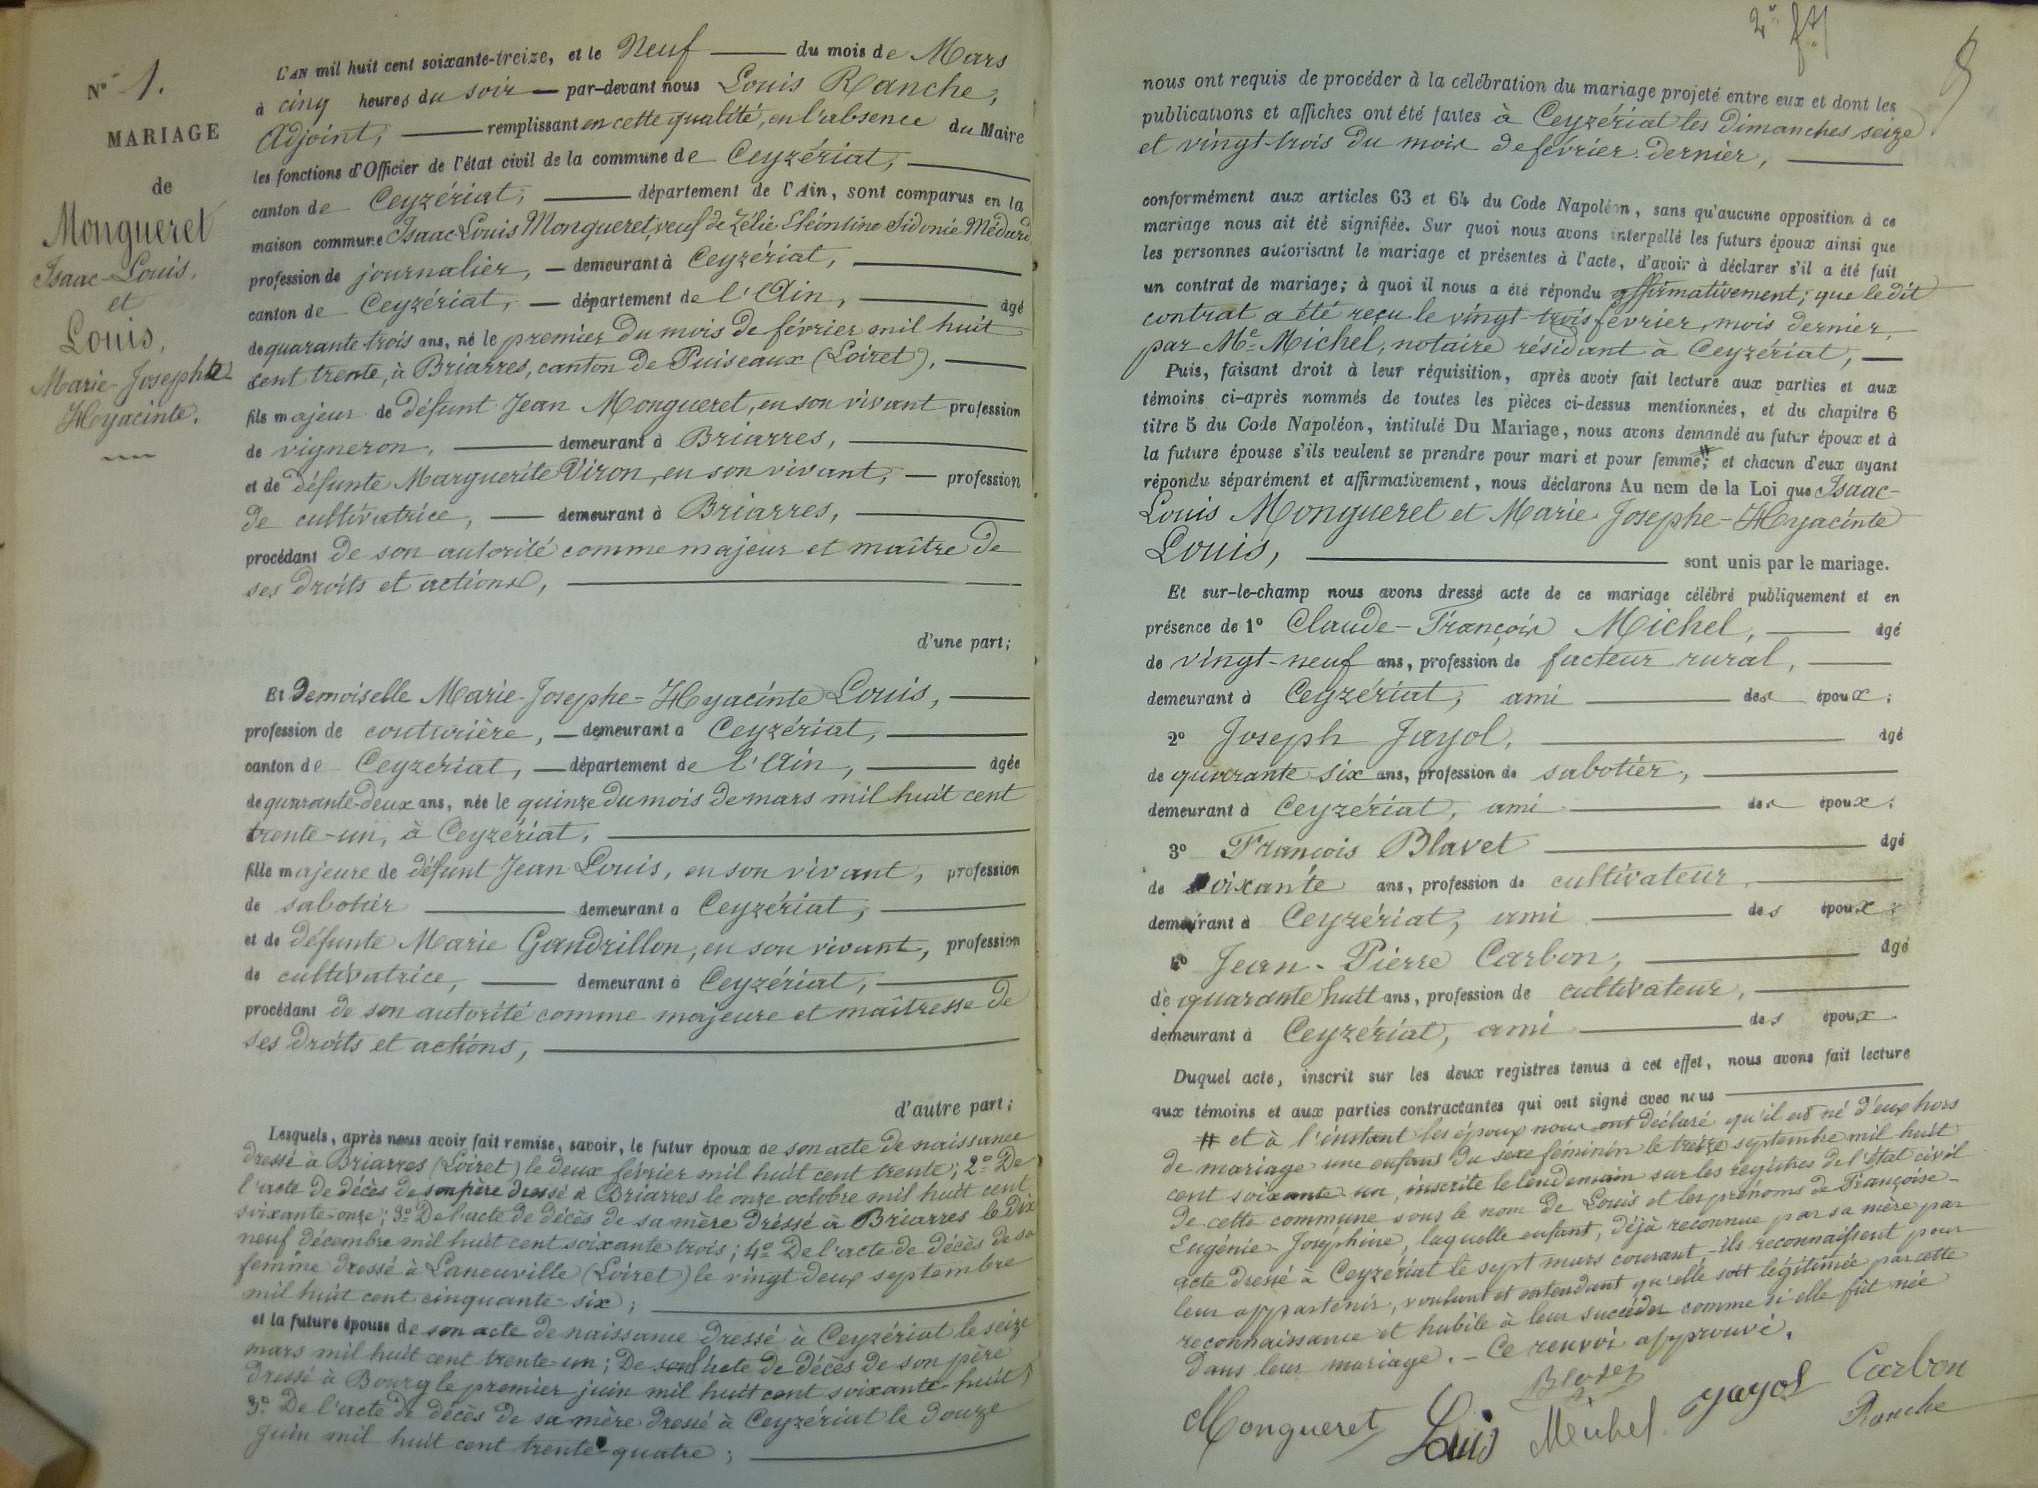 N° 1.
MARIAGE
de
Mongueret
Isaac-Louis,
et
Louis,
Marie-Josephte
Hyacinte.
L'AN mil huit cent soixante-treize, et le Neuf du mois de Mars
à cinq heures du soir par-devant nous Louis Ranche,
Adjoint, remplissant en cette qualité, en l'absence du Maire
les fonctions d'Officier de l'état civil de la commune de Ceyzériat,
canton de Ceyzériat, département de l'Ain, sont comparus en la
maison commune Isaac Louis Mongueret, veuf de Zélie Cléontine Sidonie Médard
profession de journalier, demeurant à Ceyzériat,
canton de Ceyzériat, département de l'Ain, âgé
de quarante trois ans, né le premier du mois de février mil huit
cent trente, à Briarres, canton de Puiseaux (Loiret),
fils majeur de défunt Jean Mongueret, en son vivant profession
de vigneron, demeurant à Briarres,
et de défunte Marguerite Viron, en son vivant, profession
de cultivatrice, demeurant à Briarres,
procédant de son autorité comme majeur et maître de
ses droits et actions,
d'une part;
Et Demoiselle Marie-Josephe-Hyacinte Louis,
profession de couturière, demeurant à Ceyzériat,
canton de Ceyzériat, département de l'Ain, âgée
de quarante-deux ans, née le quinze du mois de mars mil huit cent
trente-un, à Ceyzériat,
fille majeure de défunt Jean Louis, en son vivant, profession
de sabotier demeurant à Ceyzériat,
et de défunte Marie Gandrillon, en son vivant, profession
de cultivatrice, demeurant à Ceyzériat,
procédant de son autorité comme majeure et maîtresse de
ses droits et actions,
d'autre part;
Lesquels, après nous avoir fait remise, savoir, le futur époux de son acte de naissance
dressé à Briarres (Loiret) le deux février mil huit cent trente; 2° De
l'acte de décès de son père dressé à Briarres le onze octobre mil huit cent
soixante-onze; 3° De l'acte de décès de sa mère dressé à Briarres le dix
neuf décembre mil huit cent soixante trois; 4° De l'acte de décès de sa
femme dressé à Laneuville (Loiret) le vingt deux septembre
mil huit cent cinquante-six;
et la future épouse de son acte de naissance dressé à Ceyzériat le seize
mars mil huit cent trente-un; De l'acte de décès de son père
dressé à Bourg le premier juin mil huit cent soixante-huit;
3° De l'acte de décès de sa mère dressé à Ceyzériat le douze
Juin mil huit cent trente-quatre;
nous ont requis de procéder à la célébration du mariage projeté entre eux et dont les
publications et affiches ont été faites à Ceyzériat les dimanches seize
et vingt-trois du mois de février dernier,
conformément aux articles 63 et 64 du Code Napoléon, sans qu'aucune opposition à ce
mariage nous ait été signifiée. Sur quoi nous avons interpellé les futurs époux ainsi que
les personnes autorisant le mariage et présentes à l'acte, d'avoir à déclarer s'il a été fait
un contrat de mariage; à quoi il nous a été répondu affirmativement; que ledit
contrat a été reçu le vingt-trois février, mois dernier,
par Me Michel, notaire résidant à Ceyzériat,
Puis, faisant droit à leur réquisition, après avoir fait lecture aux parties et aux
témoins ci-après nommés de toutes les pièces ci-dessus mentionnées, et du chapitre 6
titre 5 du Code Napoléon, intitulé Du Mariage, nous avons demandé au futur époux et à
la future épouse s'ils veulent se prendre pour mari et pour femme;# et chacun d'eux ayant
répondu séparément et affirmativement, nous déclarons Au nom de la Loi que Isaac-
Louis Mongueret et Marie-Josephe-Hyacinte
Louis, sont unis par le mariage.
Et sur-le-champ nous avons dressé acte de ce mariage célébré publiquement et en
présence de 1° Claude-François Michel, âgé
de vingt-neuf ans, profession de facteur rural,
demeurant à Ceyzériat, ami des époux;
2° Joseph Jayol, âgé
de quarante six ans, profession de sabotier,
demeurant à Ceyzériat, ami des époux;
3° François Blavet âgé
de soixante ans, profession de cultivateur
demeurant à Ceyzériat, ami des époux;
4° Jean-Pierre Carbon, âgé
de quarante huit ans, profession de cultivateur,
demeurant à Ceyzériat, ami des époux
Duquel acte, inscrit sur les deux registres tenus à cet effet, nous avons fait lecture
aux témoins et aux parties contractantes qui ont signé avec nous
# et à l'instant les époux nous ont déclaré qu'il est né d'eux hors
de mariage une enfant du sexe féminin le treize septembre mil huit
cent soixante-un, inscrite le lendemain sur les registres de l'état civil
de cette commune sous le nom de Louis et les prénoms de Françoise-
Eugénie-Joséphine, laquelle enfant, déjà reconnue par sa mère par
acte dressé à Ceyzériat le sept mars courant, ils reconnaissent pour
leur appartenir, voulant et entendant qu'elle soit légitimée par cette
reconnaissance et habile à leur succéder comme si elle fût née
dans leur mariage. - Ce renvoi approuvé.
Mongueret Louis Michel Jayol Carbon
Ranche